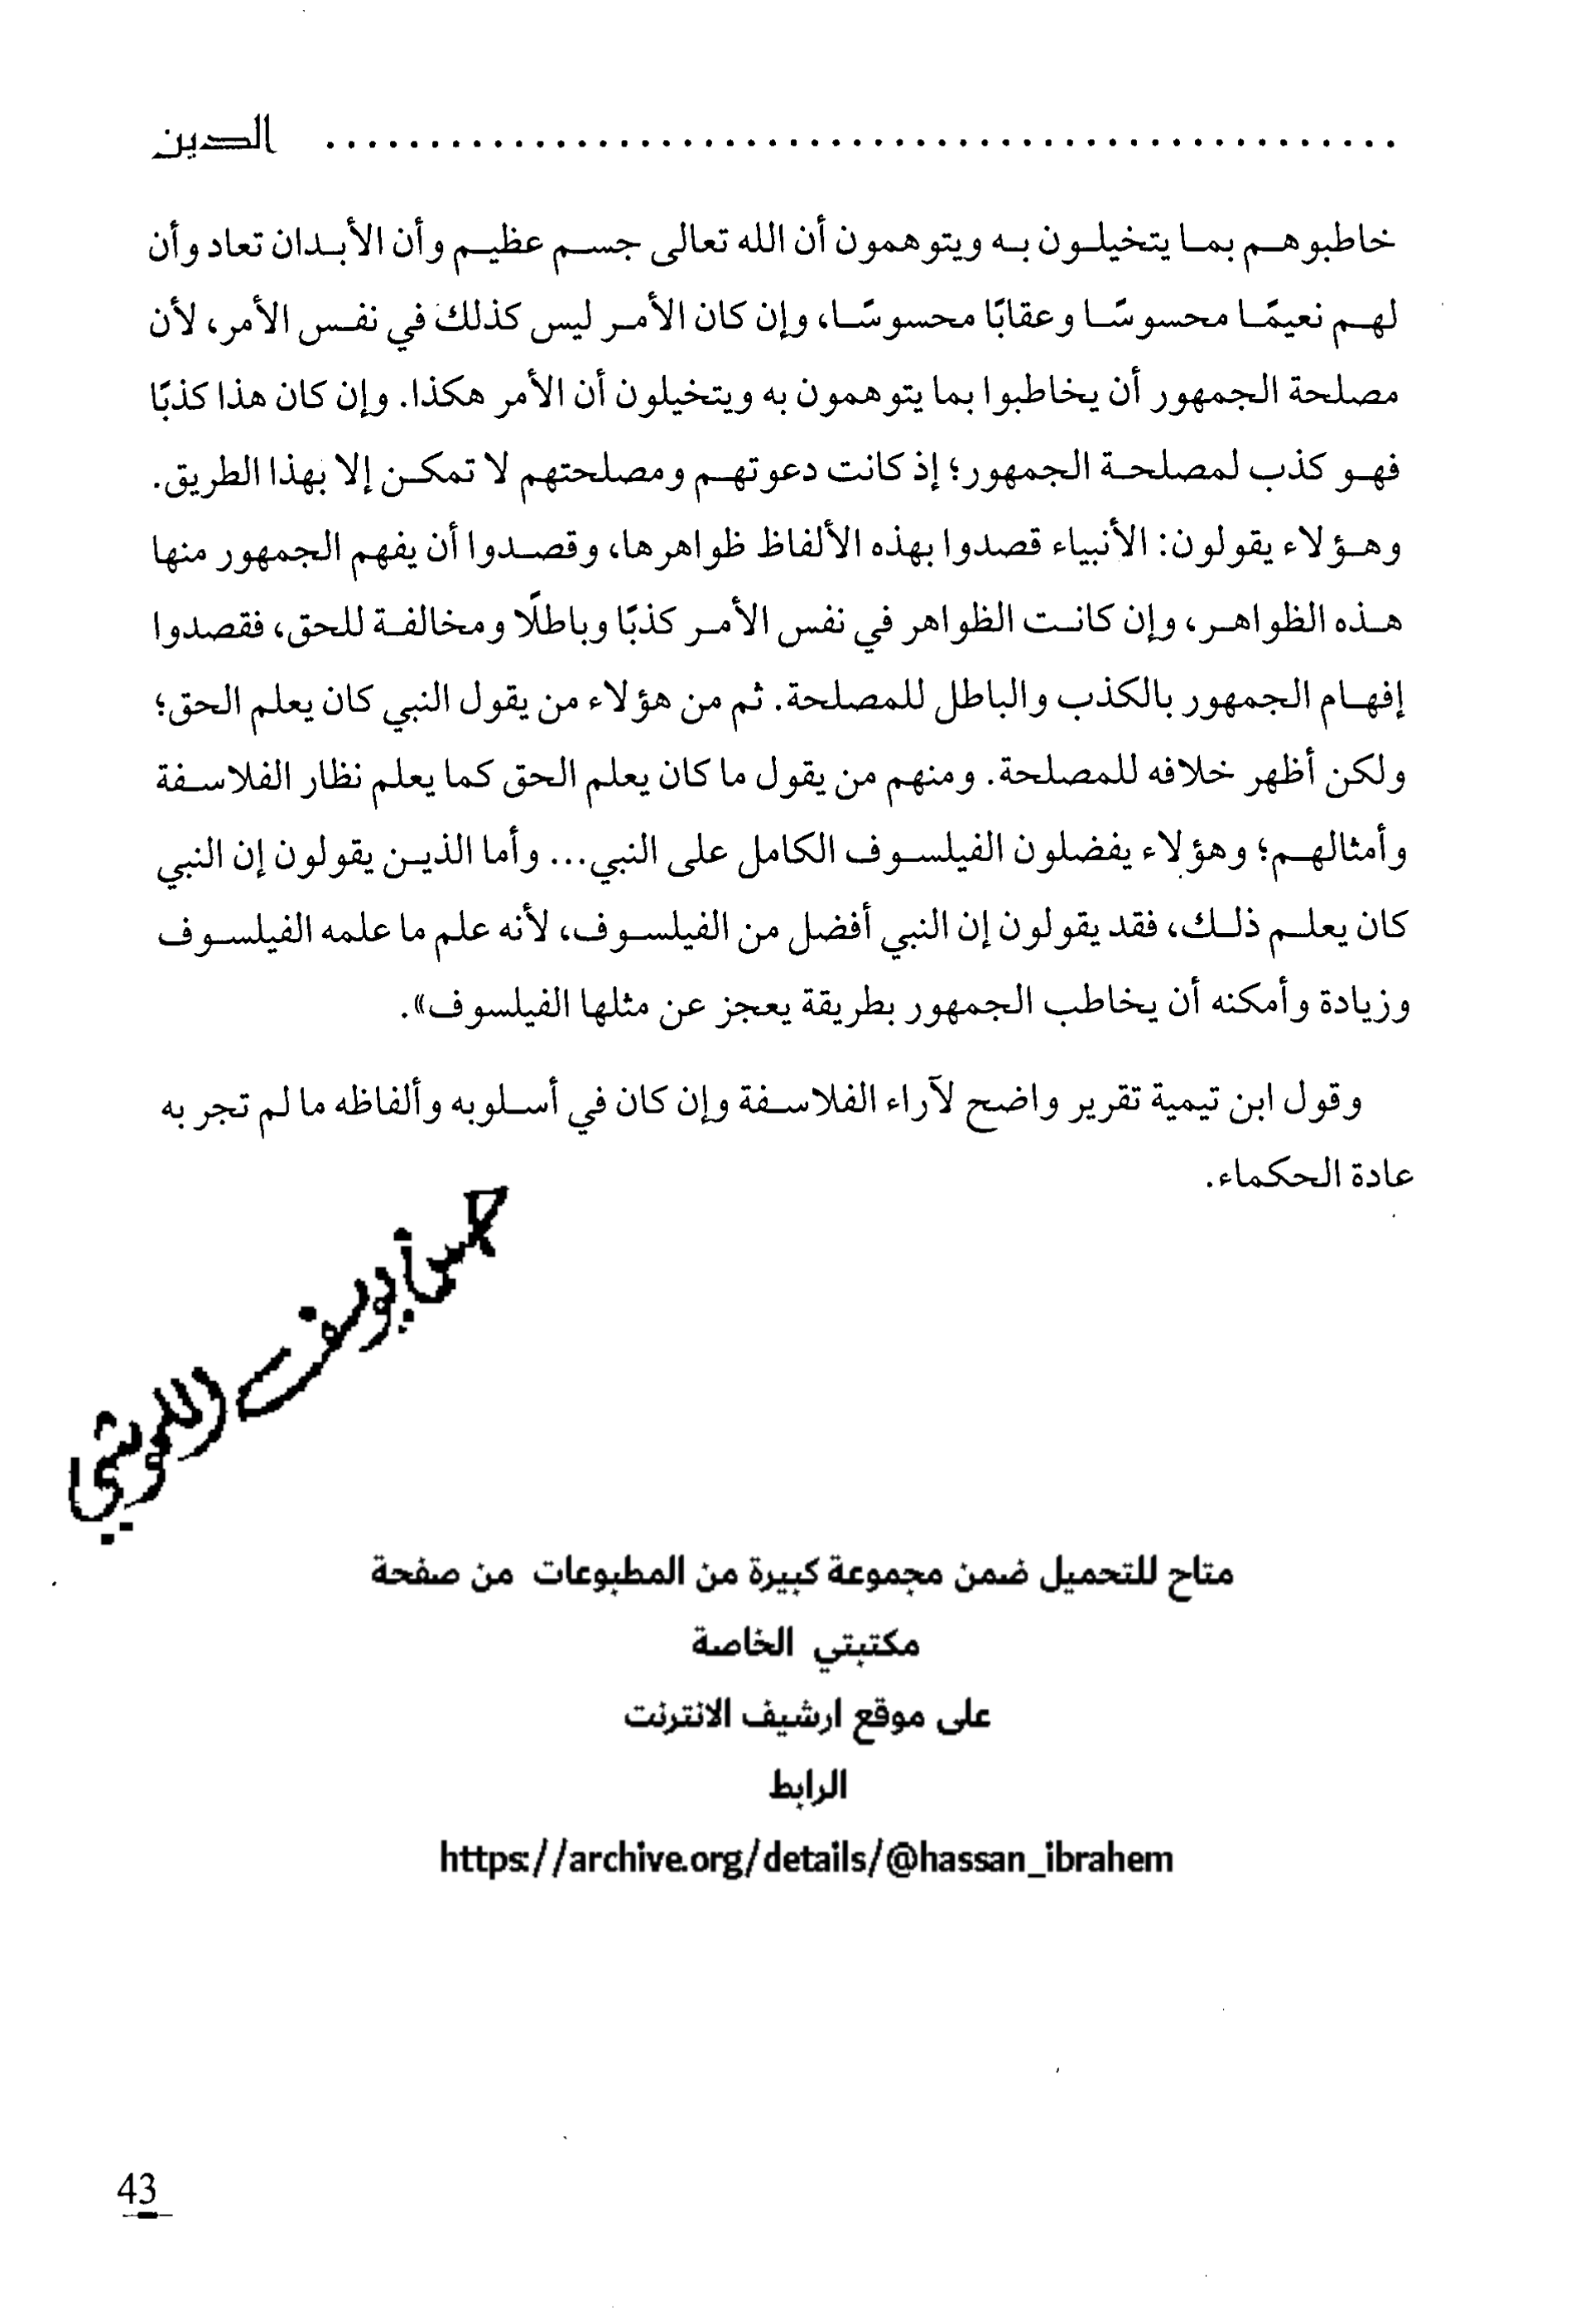 الدين ..................................................
خاطبوهم بما يتخيلون به ويتوهمون أن الله تعالى جسم عظيم وأن الأبدان تعاد وأن
لهم نعيمًا محسوسًا وعقابًا محسوسًا، وإن كان الأمر ليس كذلك في نفس الأمر، لأن
مصلحة الجمهور أن يخاطبوا بما يتوهمون به ويتخيلون أن الأمر هكذا. وإن كان هذا كذبًا
فهو كذب لمصلحة الجمهور؛ إذ كانت دعوتهم ومصلحتهم لا تمكن إلا بهذا الطريق.
وهؤلاء يقولون: الأنبياء قصدوا بهذه الألفاظ ظواهرها، وقصدوا أن يفهم الجمهور منها
هذه الظواهر، وإن كانت الظواهر في نفس الأمر كذبًا وباطلًا ومخالفة للحق، فقصدوا
إفهام الجمهور بالكذب والباطل للمصلحة. ثم من هؤلاء من يقول النبي كان يعلم الحق؛
ولكن أظهر خلافه للمصلحة. ومنهم من يقول ما كان يعلم الحق كما يعلم نظار الفلاسفة
وأمثالهم؛ وهؤلاء يفضلون الفيلسوف الكامل على النبي... وأما الذين يقولون إن النبي
كان يعلم ذلك، فقد يقولون إن النبي أفضل من الفيلسوف، لأنه علم ما علمه الفيلسوف
وزيادة وأمكنه أن يخاطب الجمهور بطريقة يعجز عن مثلها الفيلسوف».
وقول ابن تيمية تقرير واضح لآراء الفلاسفة وإن كان في أسلوبه وألفاظه ما لم تجر به
عادة الحكماء.
متاح للتحميل ضمن مجموعة كبيرة من المطبوعات من صفحة
مكتبتي الخاصة
على موقع ارشيف الانترنت
الرابط
https://archive.org/details/@hassan_ibrahem
43